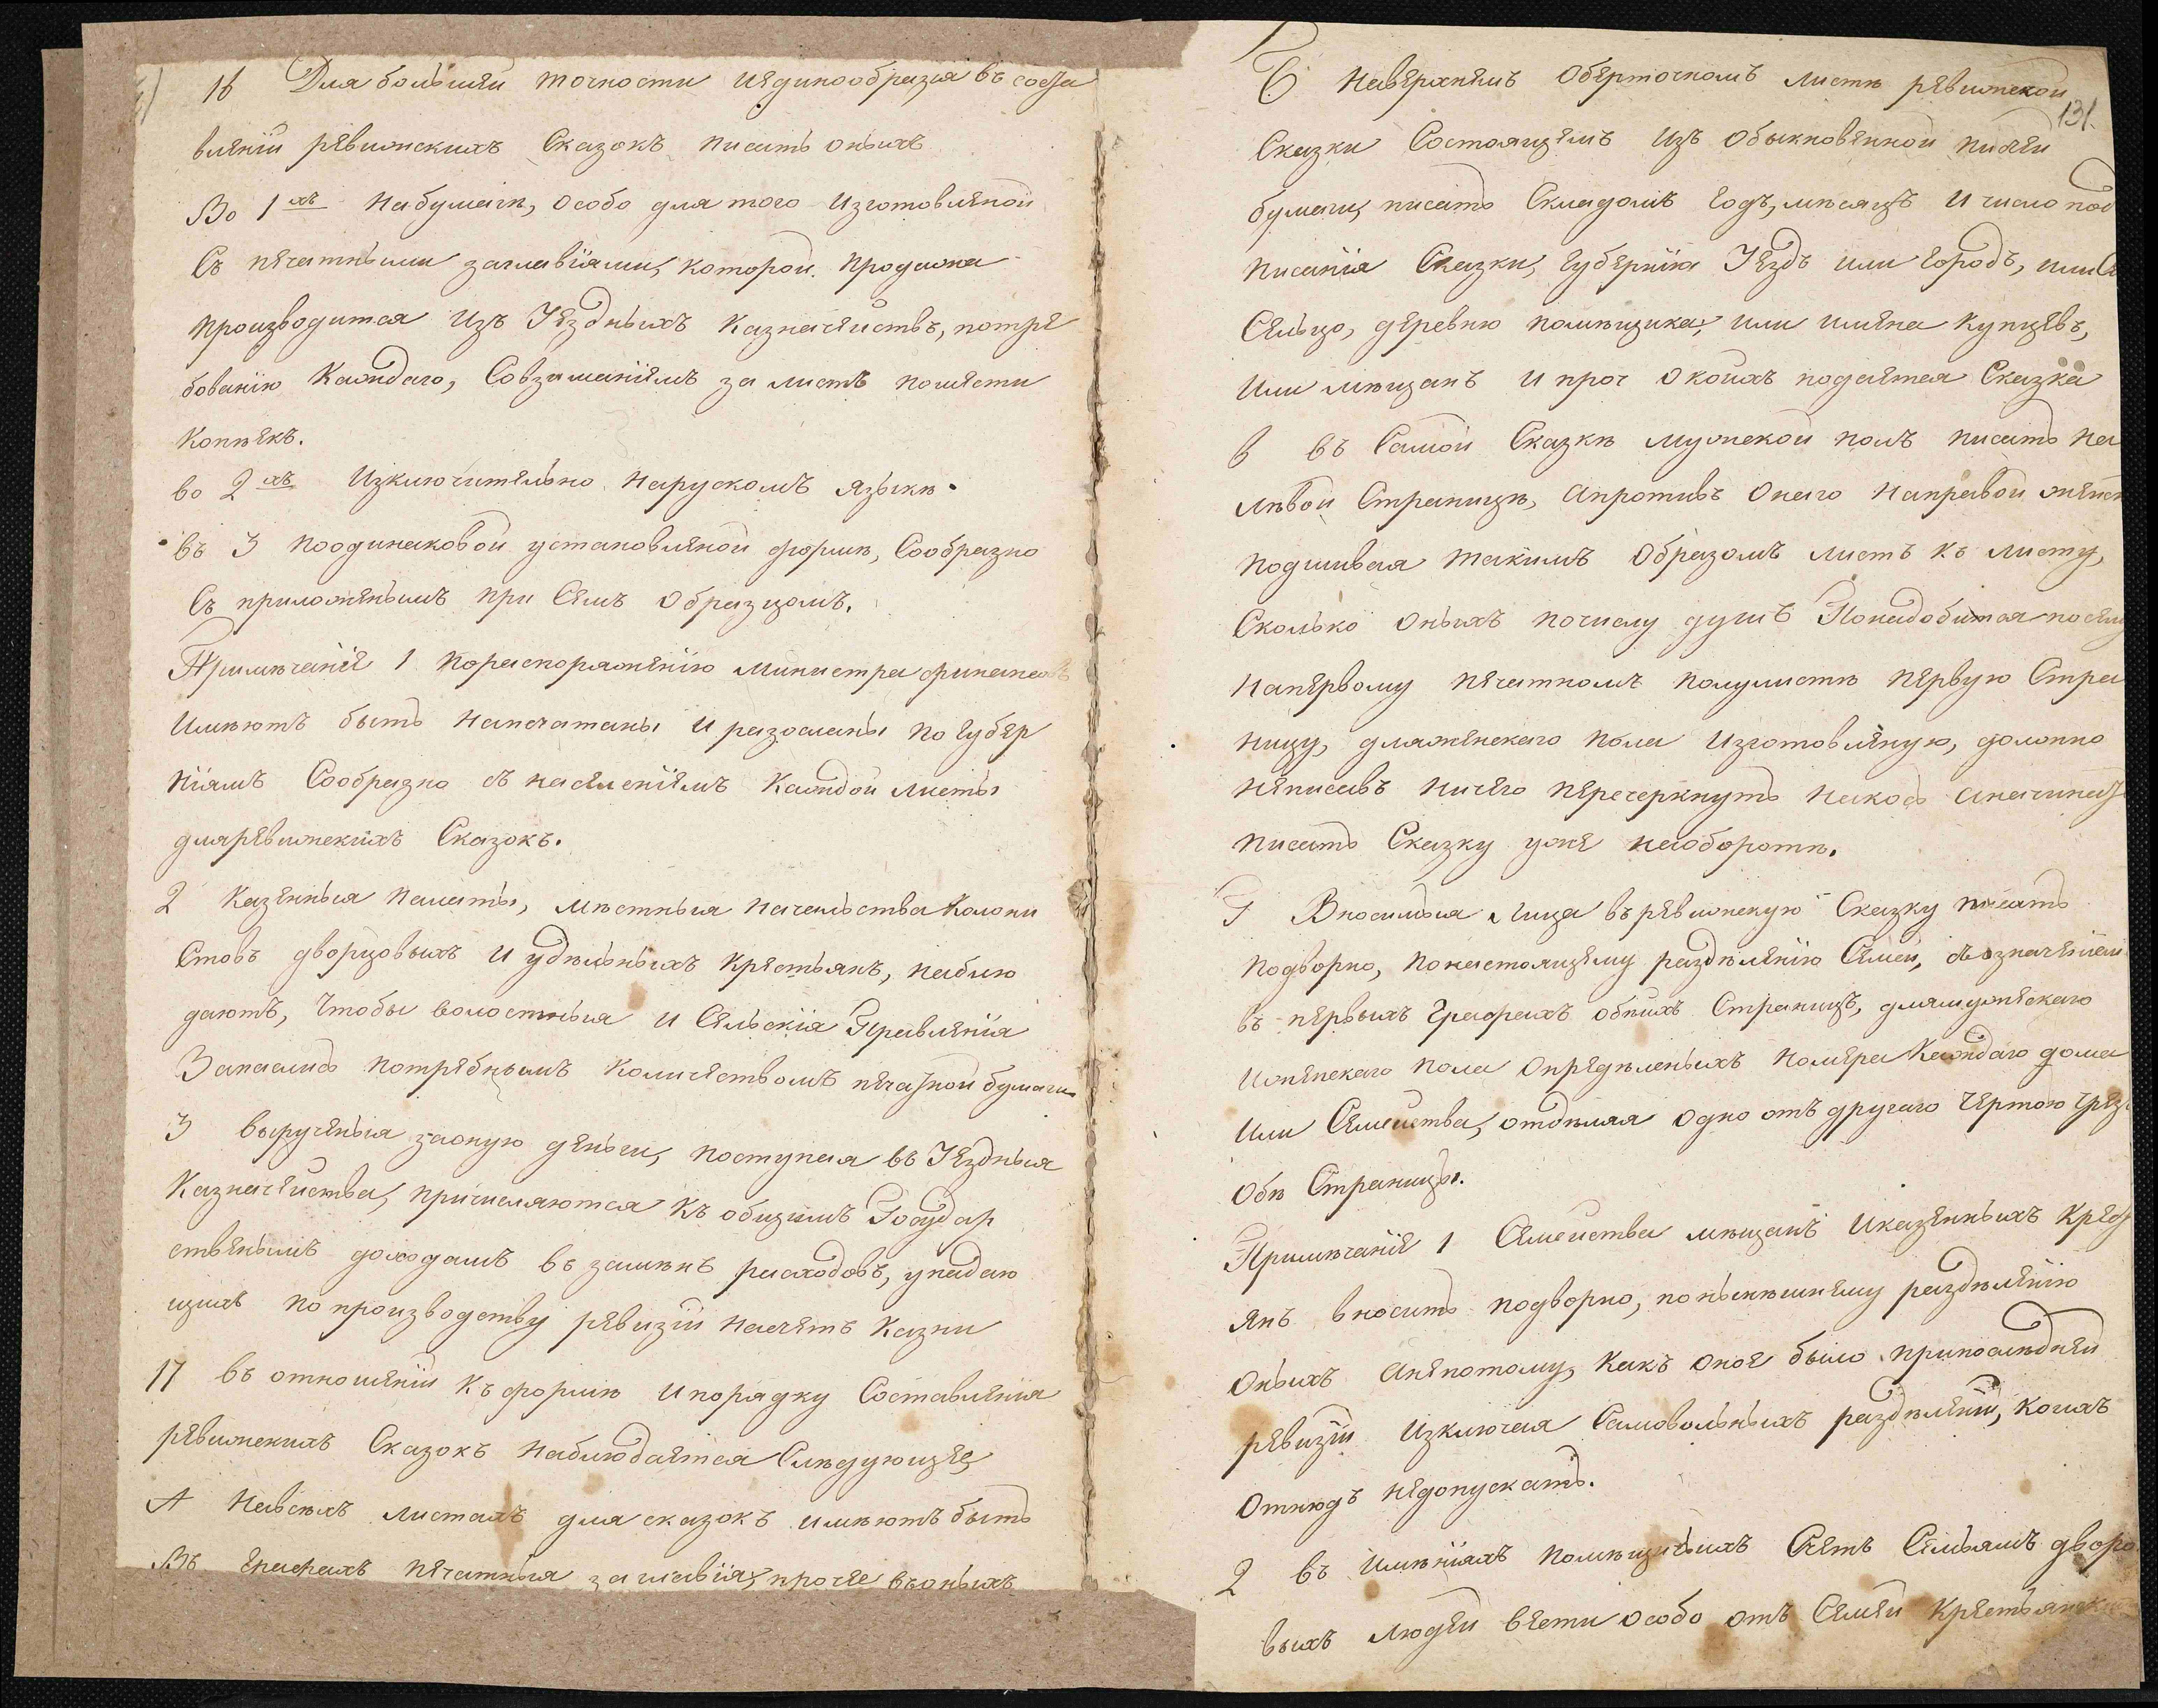 16 Для большей точности иединообразія въ соста
вленіи ревижскихъ Сказокъ писать оныхъ
Во 1хъ Набумагѣ, особо для того изготовленой
Съ печатными заглавіями, которой продажа
производится изъ Уездныхъ Казначействъ, потре
бованію Каждаго, Совзиманіемъ за листъ пошести
копѣекъ.
во 2хъ Изключительно нарускомъ языкѣ.
въ 3 поодинаковой установленой формѣ, Сообразно
Съ приложенымъ при Семъ образцомъ.
Примѣчаніе 1 пораспоряженію Министра финансовъ
Имѣютъ быть напечатаны и разосланы по Губер
ніямъ Сообразно съ населеніемъ каждой листы
дляревижскихъ Сказокъ.
2 Казенныя Палаты, мѣстныя начальства Колони
стовъ дворцовыхъ и удѣльныхъ крестьянъ, наблю
даютъ, чтобы волостныя и Сельскія Правленія
Запаслись потребнымъ количествомъ печатной бумаги
3 вырученыя заоную деньги, поступая въ Уездныя
Казначейства, причисляются къ общимъ Государ
ственымъ доходамъ въ замѣнъ расходовъ, упадаю
щихъ по производству ревизіи насчетъ казны
17 въ отношеніи къ формѣ и порядку Составленія
ревижскихъ Сказокъ наблюдается Слѣдующее
А Навсѣхъ листахъ для сказокъ имѣютъ быть
Въ Графахъ печатныя заглавія, прочее въоныхъ
131.
Б Наверхнемъ оберточномъ листѣ ревижской
Сказки Состоящемъ изъ обыкновенной писчей
бумаги, писать Складомъ годъ, мѣсяцъ и число под
писанія Сказки, губернію Уездъ или городъ, или Се
Сельцо, деревню помѣщика, или имена купцевъ,
или мѣщанъ и проч о коихъ подается Сказка
В въ Самой Сказкѣ мужской полъ писать на
лѣвой Страницѣ, апротивъ онаго направой женск
подшивая такимъ образомъ листъ къ листу,
Сколько оныхъ почислу душъ Понадобится посему
напервому печатномъ полулистѣ первую Стра
ницу, дляженскаго пола изготовленую, должно
неписавъ ничего перечеркнуть накось аначинать
писать Сказку уже наоборотѣ.
Г Вносимыя Лица въревижскую Сказку писать
подворно, понастоящему раздѣленію Семей, съозначеніем
въ первыхъ Графахъ обѣихъ Страницъ, длямужескаго
иженскаго пола опредѣленыхъ номера Каждаго дома
или Семейства, отдѣляя одно отъ другаго чертою чрезъ
обѣ Страницы.
Примѣчаніе 1 Семейства мѣщанъ иказенныхъ крест
янъ вносить подворно, понынѣшнему раздѣленію
оныхъ анепотому, какъ оное было припослѣдней
ревизіи изключая Самовольныхъ раздѣленій, коихъ
отнюдъ недопускать.
2 въ имѣніяхъ помѣщичьихъ Счетъ Семьямъ дворо
выхъ людей вести особо отъ Семей крестьянск